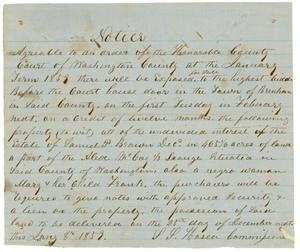 Notice
Agreeable to an order of the Honorable County
Court of Washington County at the January
Term 1857 there will be Exposed for Sale to the highest bidder
Before the Court house door in the Town of Brenham
in Said County, on the first Tuesday in February
next, on a Credit of twelve months, the following
property (to wit) all of the undivided interest of the
Estate of Samuel P. Brown Decd. in 405 acres of land
a part of the League Situated in
Said County of Washington, also a negro woman
Mary & her Child Frank, the purchasers will be
required to give notes with approved Security &
a lien on the property, the possession of Said
land to be delivered on the 25th day of December next
this Jany 8th 1857. Commissioner